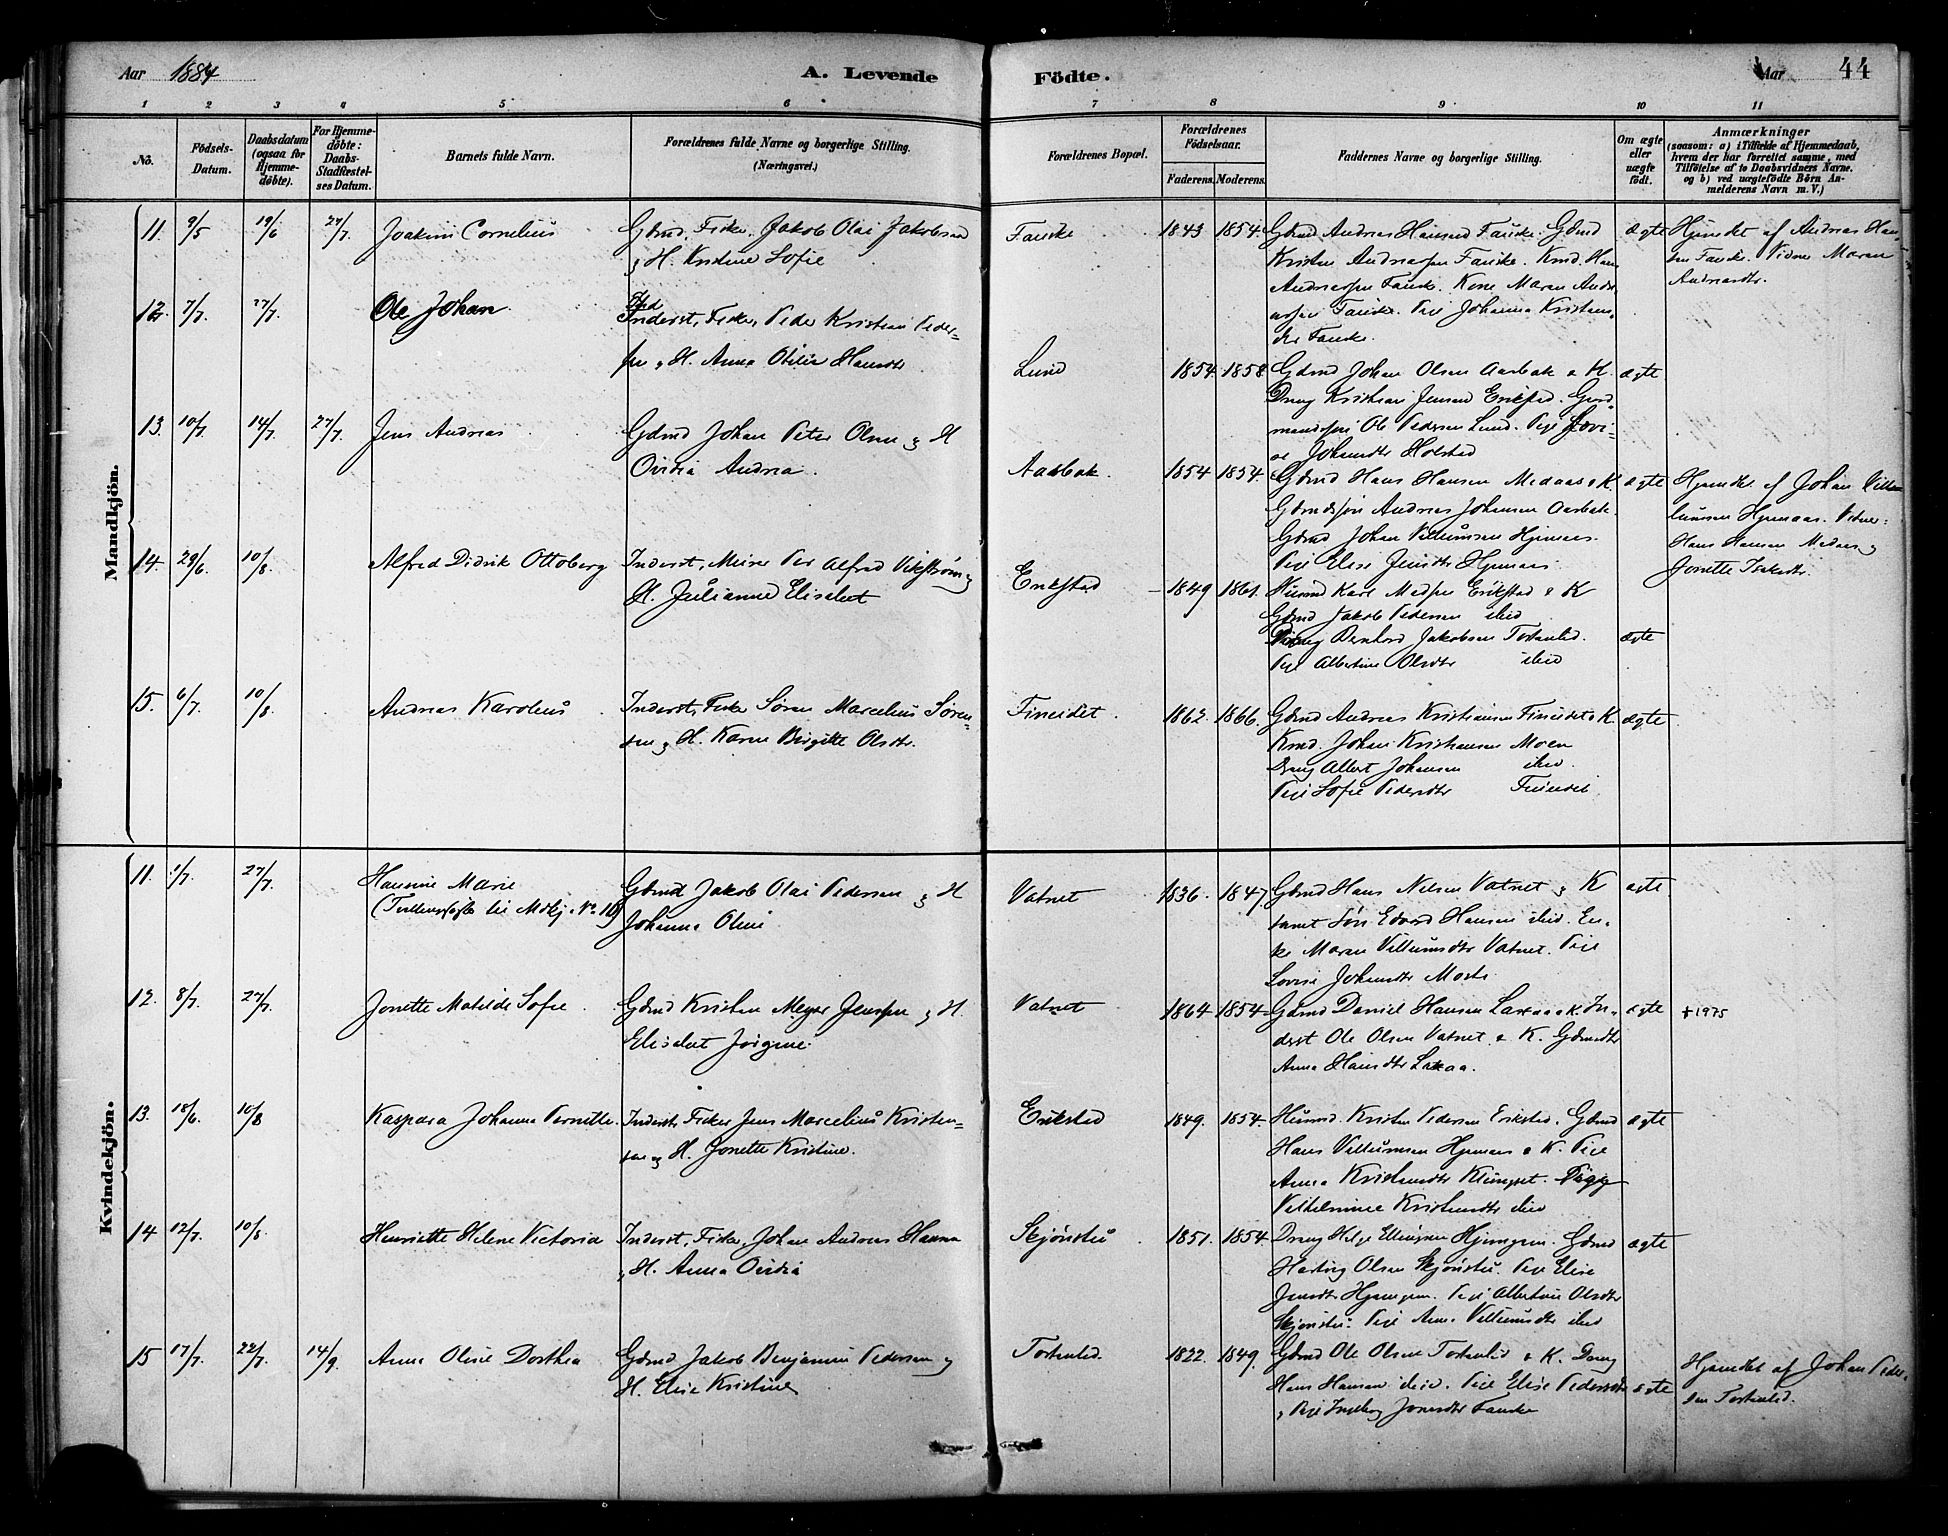 Aar 1884 A. Levende Födte. Aar 44
1 2 3 4 5 6 7 8 9 10 11
No.
Födsels-
Datum.
Daabsdatum
(ogsaa for
Hjemme-
döbte).
For Hjemme-
döbte:
Daabs-
Stadfæstel-
ses Datum.
Barnets fulde Navn.
Forældrenes fulde Navne og borgerlige Stilling.
(Næringsvei.)
Forældrenes Bopæl.
Forældrenes
Födselsaar.
Faderens. Moderens.
Faddernes Navne og borgerlige Stilling.
Om ægte
eller
uægte
födt.
Anmærkninger
(saasom: a) i Tilfælde af Hjemmedaab,
hvem der har forrettet samme, med
Tilföielse af to Daabsvidners Navne.
og b) ved uægtefödte Börn An-
melderens Navn m. V.)
Mandkjön.
11. 9/5 19/6 27/7. Joakim Cornelius Gdmd, Fisker, Jakob Olai Jakobsen
& H. Kristine Sofie
Fauske 1843 1854. Gdmd Andreas Hansen Fauske. Gdmd
Kristen Andreassen Fauske. Kmd. Hans
Andreassen Fauske. Kone Maren Andr
assen Fauske. Pige Johanna Kristens
dtr Fauske.
ægte Hjemdøbt af Andreas Han
sen Fauske. Vidne Maren
Andreasdtr.
12. 7/7. 27/7. Ole Johan Inderst, Fisker, Peder Kristian Peder-
sen & H. Anna Otilie Hansdtr
Lund 1854 1858. Gdmd Johan Olsen Aasbak & K.
Dreng Kristian Jensen Erikstad. Gaard-
mandssøn Ole Pedersen Lund. Pige Lovi-
se Johansdtr Holstad
ægte
13. 10/7. 14/7. 27/7. Jens Andreas Gdmd Johan Peter Olsen & H
Ovidia Andrea.
Aasbak. 1854 1854. Gdmd Hans Hansen Medaas & K.
Gdmdssøn Andreas Johansen Aasbak.
Gdmd Johan Villumsen Hjemaas.
Pige Elise Jensdtr Hjemaas.
ægte Hjemdøbt af Johan Vil
lumsen Hjemaas. Vidner:
Hans Hansen Medaas &
Jonette Isaksdtr.
14. 29/6. 10/8. Alfred Didrik Ottoberg Inderst, Minør Per Alfred Vikstrøm &
H. Julianne Elisabet
Erikstad 1849 1861. Husmd Karl Madsen Erikstad & K
Gdmd Jakob Pedersen ibid
Dreng Bernhard Jakobsen Tortenlid.
Pige Albertine Olsdtr ibid
ægte
15. 6/7. 10/8. Andreas Karolius Inderst, Fisker Søren Marcelius Søren-
sen & H. Karen Birgitte Olsdtr.
Fineidet. 1862. 1866. Gdmd Andreas Kristiansen Fineidet & K.
Kmd. Johan Kristiansen Moen
Dreng Albert Johansen ibid.
Pige Sofie Pedersdtr Fineidet
ægte
Kvindekjön.
11. 1/7. 27/7. Hansine Marie
(Tvillingsøster til Mdkj. No 10)
Gdmd Jakob Olai Pedersen & H
Johanna Oline
Vatnet 1836. 1847. Gdmd Hans Nielsen Vatnet & K
samt Søn Edvard Hansen ibid. En-
ke Maren Villumsdtr Vatnet. Pige
Lovise Johansdtr Moste
ægte
12. 8/7. 27/7. Jonette Matilde Sofie Gdmd Kristen Meyer Jenssen & H.
Elisabet Jørgine.
Vatnet 1864 1854 Gdmd Daniel Hansen Laxaa & K. In-
derst Ole Olsen Vatnet & K. Gdmdtr
Anna Hansdtr Laxaa.
ægte +1975
13. 18/6. 10/8 Kaspara Johanna Pernille Inderst, Fisker Jens Marcelius Kristen-
sen & H. Jonette Kristine.
Erikstad 1849. 1854. Husmd. Kristen Pedersen Erikstad. Gdmd
Hans Villumsen Hjemaas & K. Pige
Anna Kristensdtr Klungset. Pige
Vilhelmine Kristensdtr ibid
ægte
14 12/7. 10/8. Henriette Helene Victoria Inderst, Fisker, Johan Andreas Hansen
& H. Anna Ovidia
Skjønstu 1851. 1854 Dreng Helge Ellingsen Hjemgam. Gdmd
Hartvig Olsen Skjønstu. Pige Elise
Jensdtr Hjemgam. Pige Albertine Olsdtr
Skjønstu. Pige Anne Villumsdtr ibid
ægte
15 17/7. 22/7. 14/9. Anne Oline Dorthea Gdmd Jakob Benjamin Pedersen &
H. Elise Kristine
Tortenlid. 1822. 1849. Gdmd Ole Olsen Tortenlid & K. Dreng
Hans Hansen ibid. Pige Elise Pedersdtr
& Pige Ingeborg Jonasdtr Fauske
ægte Hjemdøbt af Johan Peder-
sen Tortenlid.